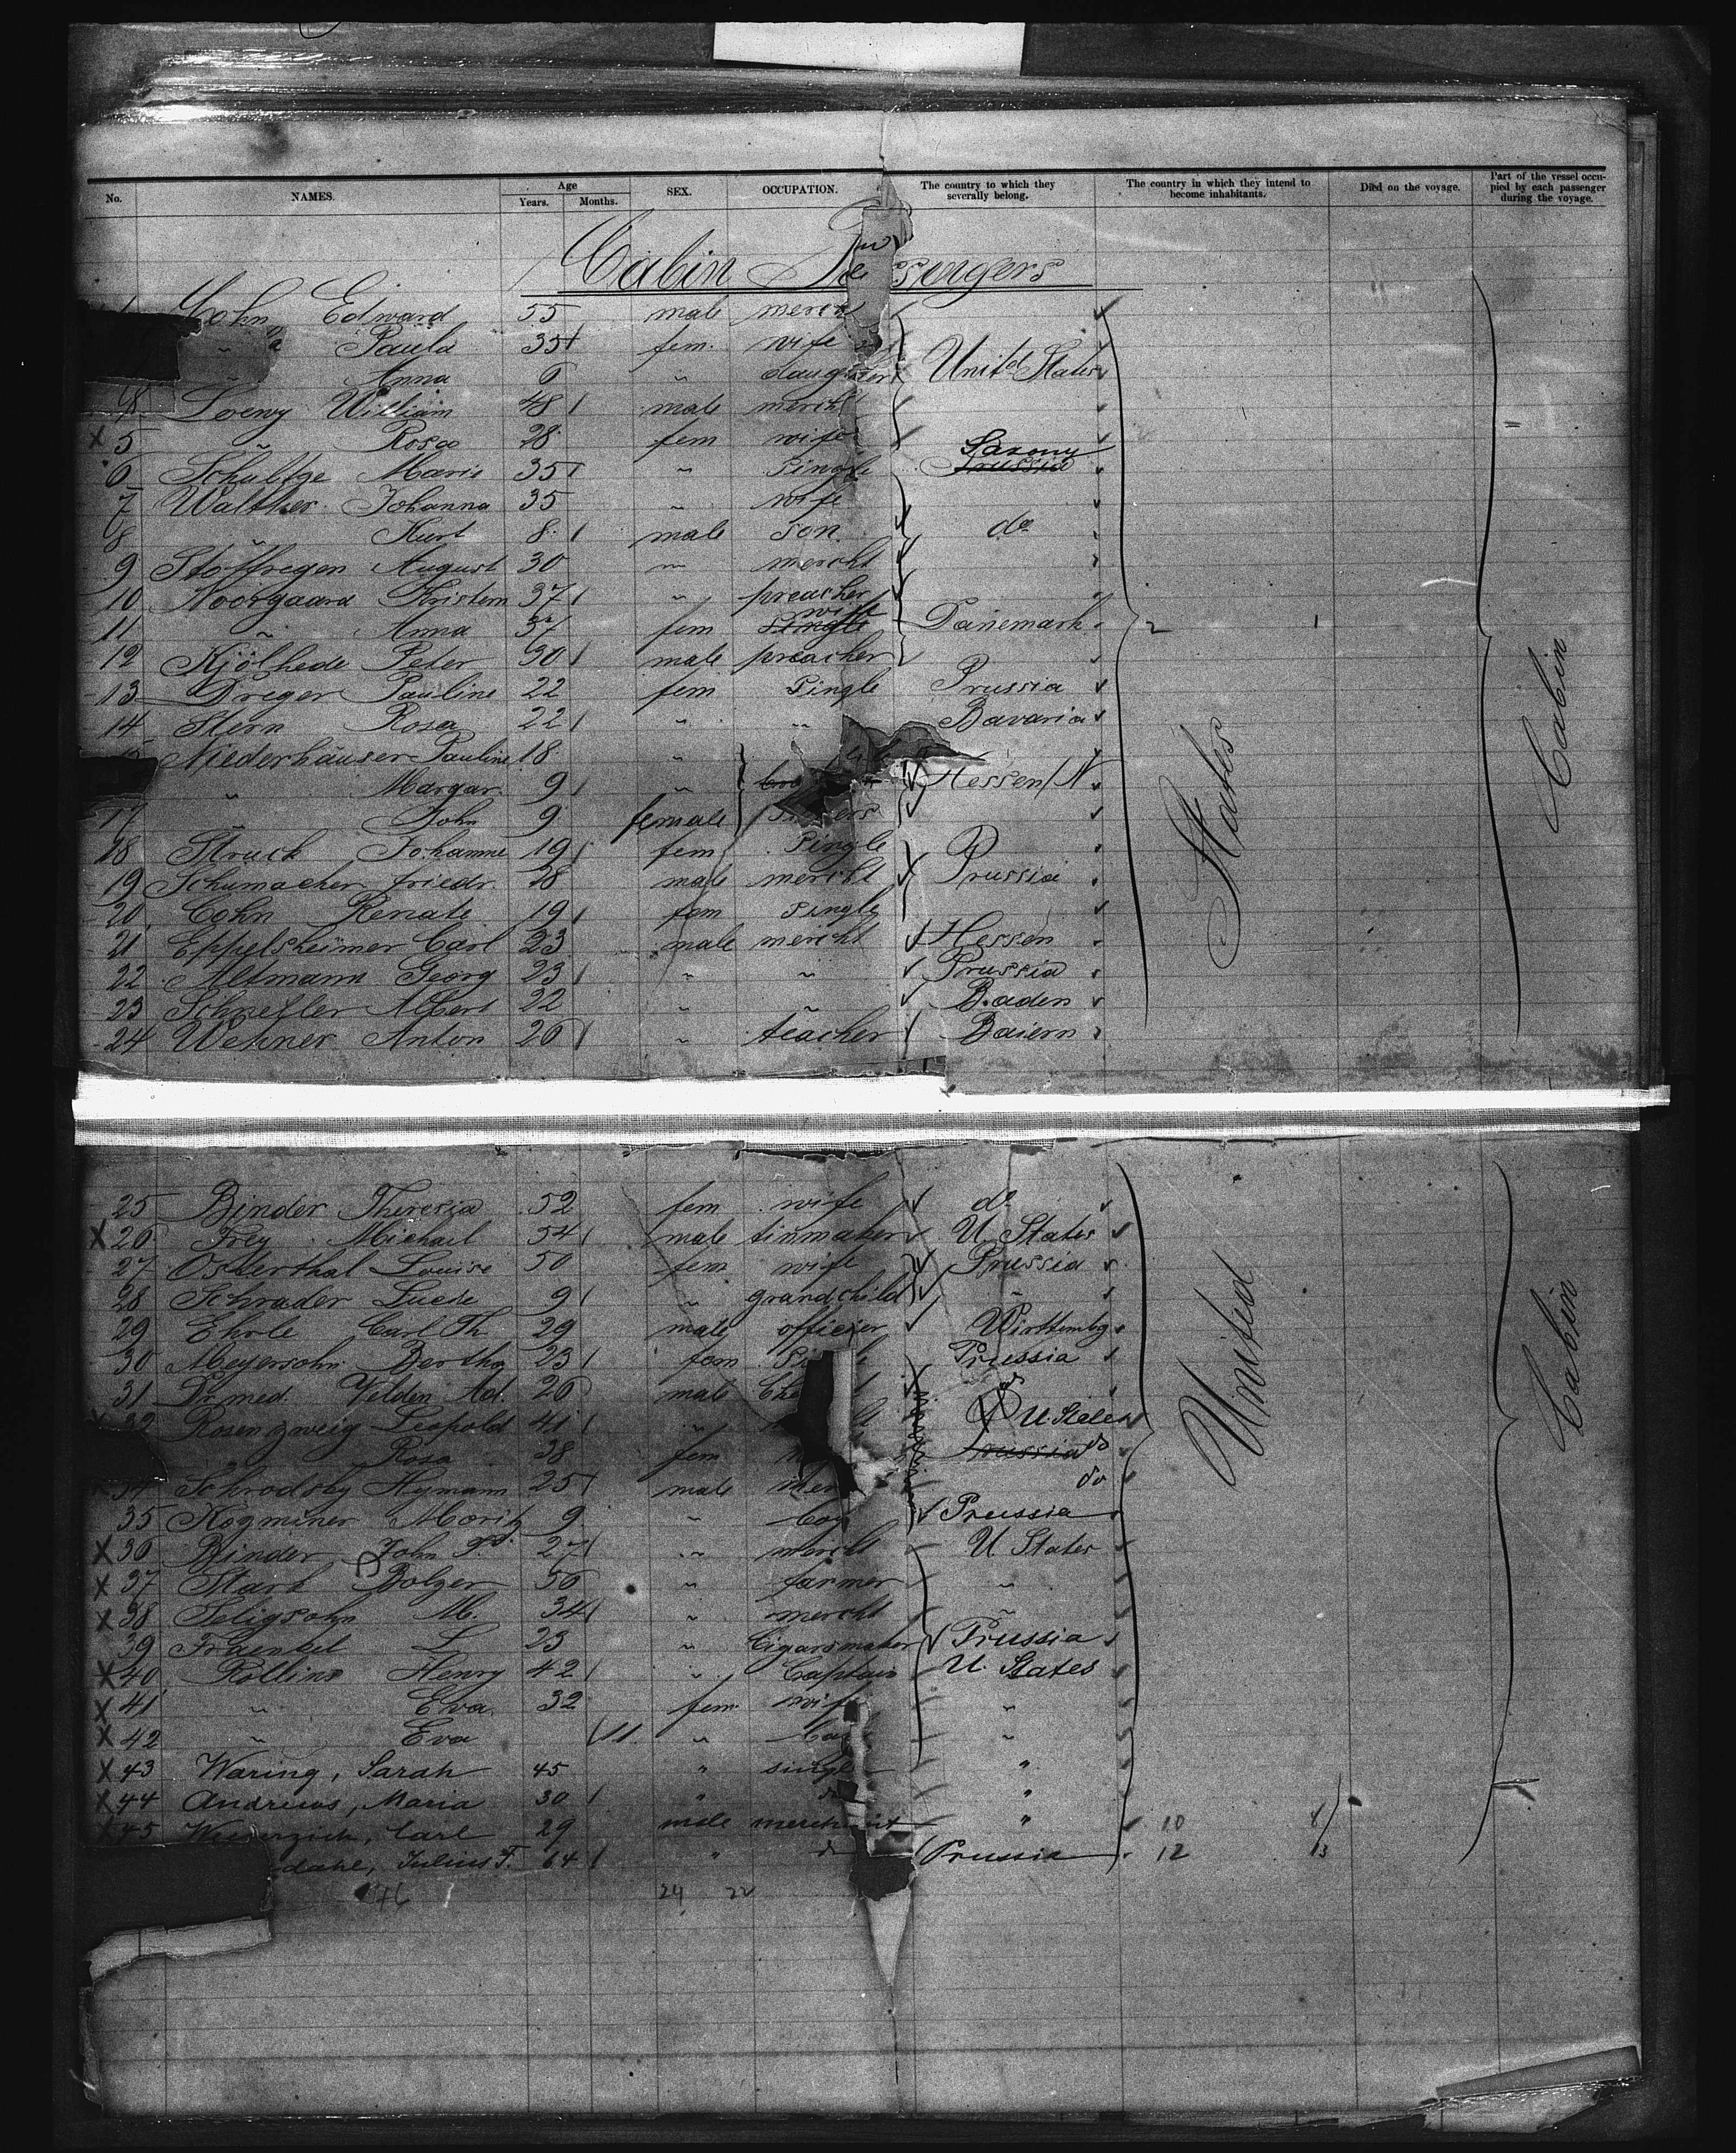 No. NAMES. Age Years. Months. SEX. OCCUPATION. The country to which they severally belong. The country in which they intend to become inhabitants. Died on the voyage. Part of the vessel occupied by each passenger during the voyage.
Cabin Passengers
Cohn Edward 55 male mercht
" Paula 35 fem. wife
" Anna 6 " daughter Unitd States
4 Loewy William 48 male mercht
X 5 " Rosa 28 fem wife
6 Schultze Marie 35 " Single Saxony Prussia
7 Walther Johanna 35 " wife
8 " Kurt 8 male son do
9 Stoffregen August 30 " mercht
10 Noorgaard Kristern 37 " preacher
11 " Anna 37 fem single wife Danemark
12 Kjölhede Peter 30 male preacher
13 Dreger Pauline 22 fem Single Prussia
14 Stern Rosa 22 " " Bavaria
15 Niederhäuser Pauline 18 "
" Margar. 9 " Hessen/N
17 " John 9 female
18 Struck Johanne 19 fem Single
19 Schumacher friedr. 28 male mercht Prussia
20 Cohn Renate 19 fem single
21 Eppelsheimer Carl 23 male mercht Hessen
22 Altmann Georg 23 " " Prussia
23 Schneller Albert 22 " " Baden
24 Wehner Anton 26 " teacher Baiern
States
Cabin
25 Binder Theresia 52 fem wife do
X 26 Frey Michael 54 male tinmaker U. States
27 Osterthal Louise 50 fem wife Prussia
28 Schrader Luese 9 " grandchild "
29 Ehrle Carl Th. 29 male officier Württembg
30 Meyersohn Bertha 23 fem Prussia
31 Dr. med. Velden Ad. 26 male
32 Rosenzweig Leopold 41 " U. States
" Rosa 38 fem Prussia do
X 34 Schrodsky Hymann 25 male mer do
35 Kozminer Moritz 9 " boy Prussia
X 36 Binder John 27 " mercht U States
X 37 Stark Bolzer 56 " farmer "
X 38 Seligsohn M. 34 " mercht "
39 Fraenkel L 23 " Cigarsmaker Prussia
X 40 Rollins Henry 42 " Captain U. States
X 41 " Eva 32 fem wife "
X 42 " Eva 11 " "
X 43 Waring, Sarah 45 " single "
X 44 Andrews, Maria 30 " do "
X 45 Carl 29 male merchant " 10
dahl, Julius F. 64 " do Prussia 12 13
United
Cabin
24 22